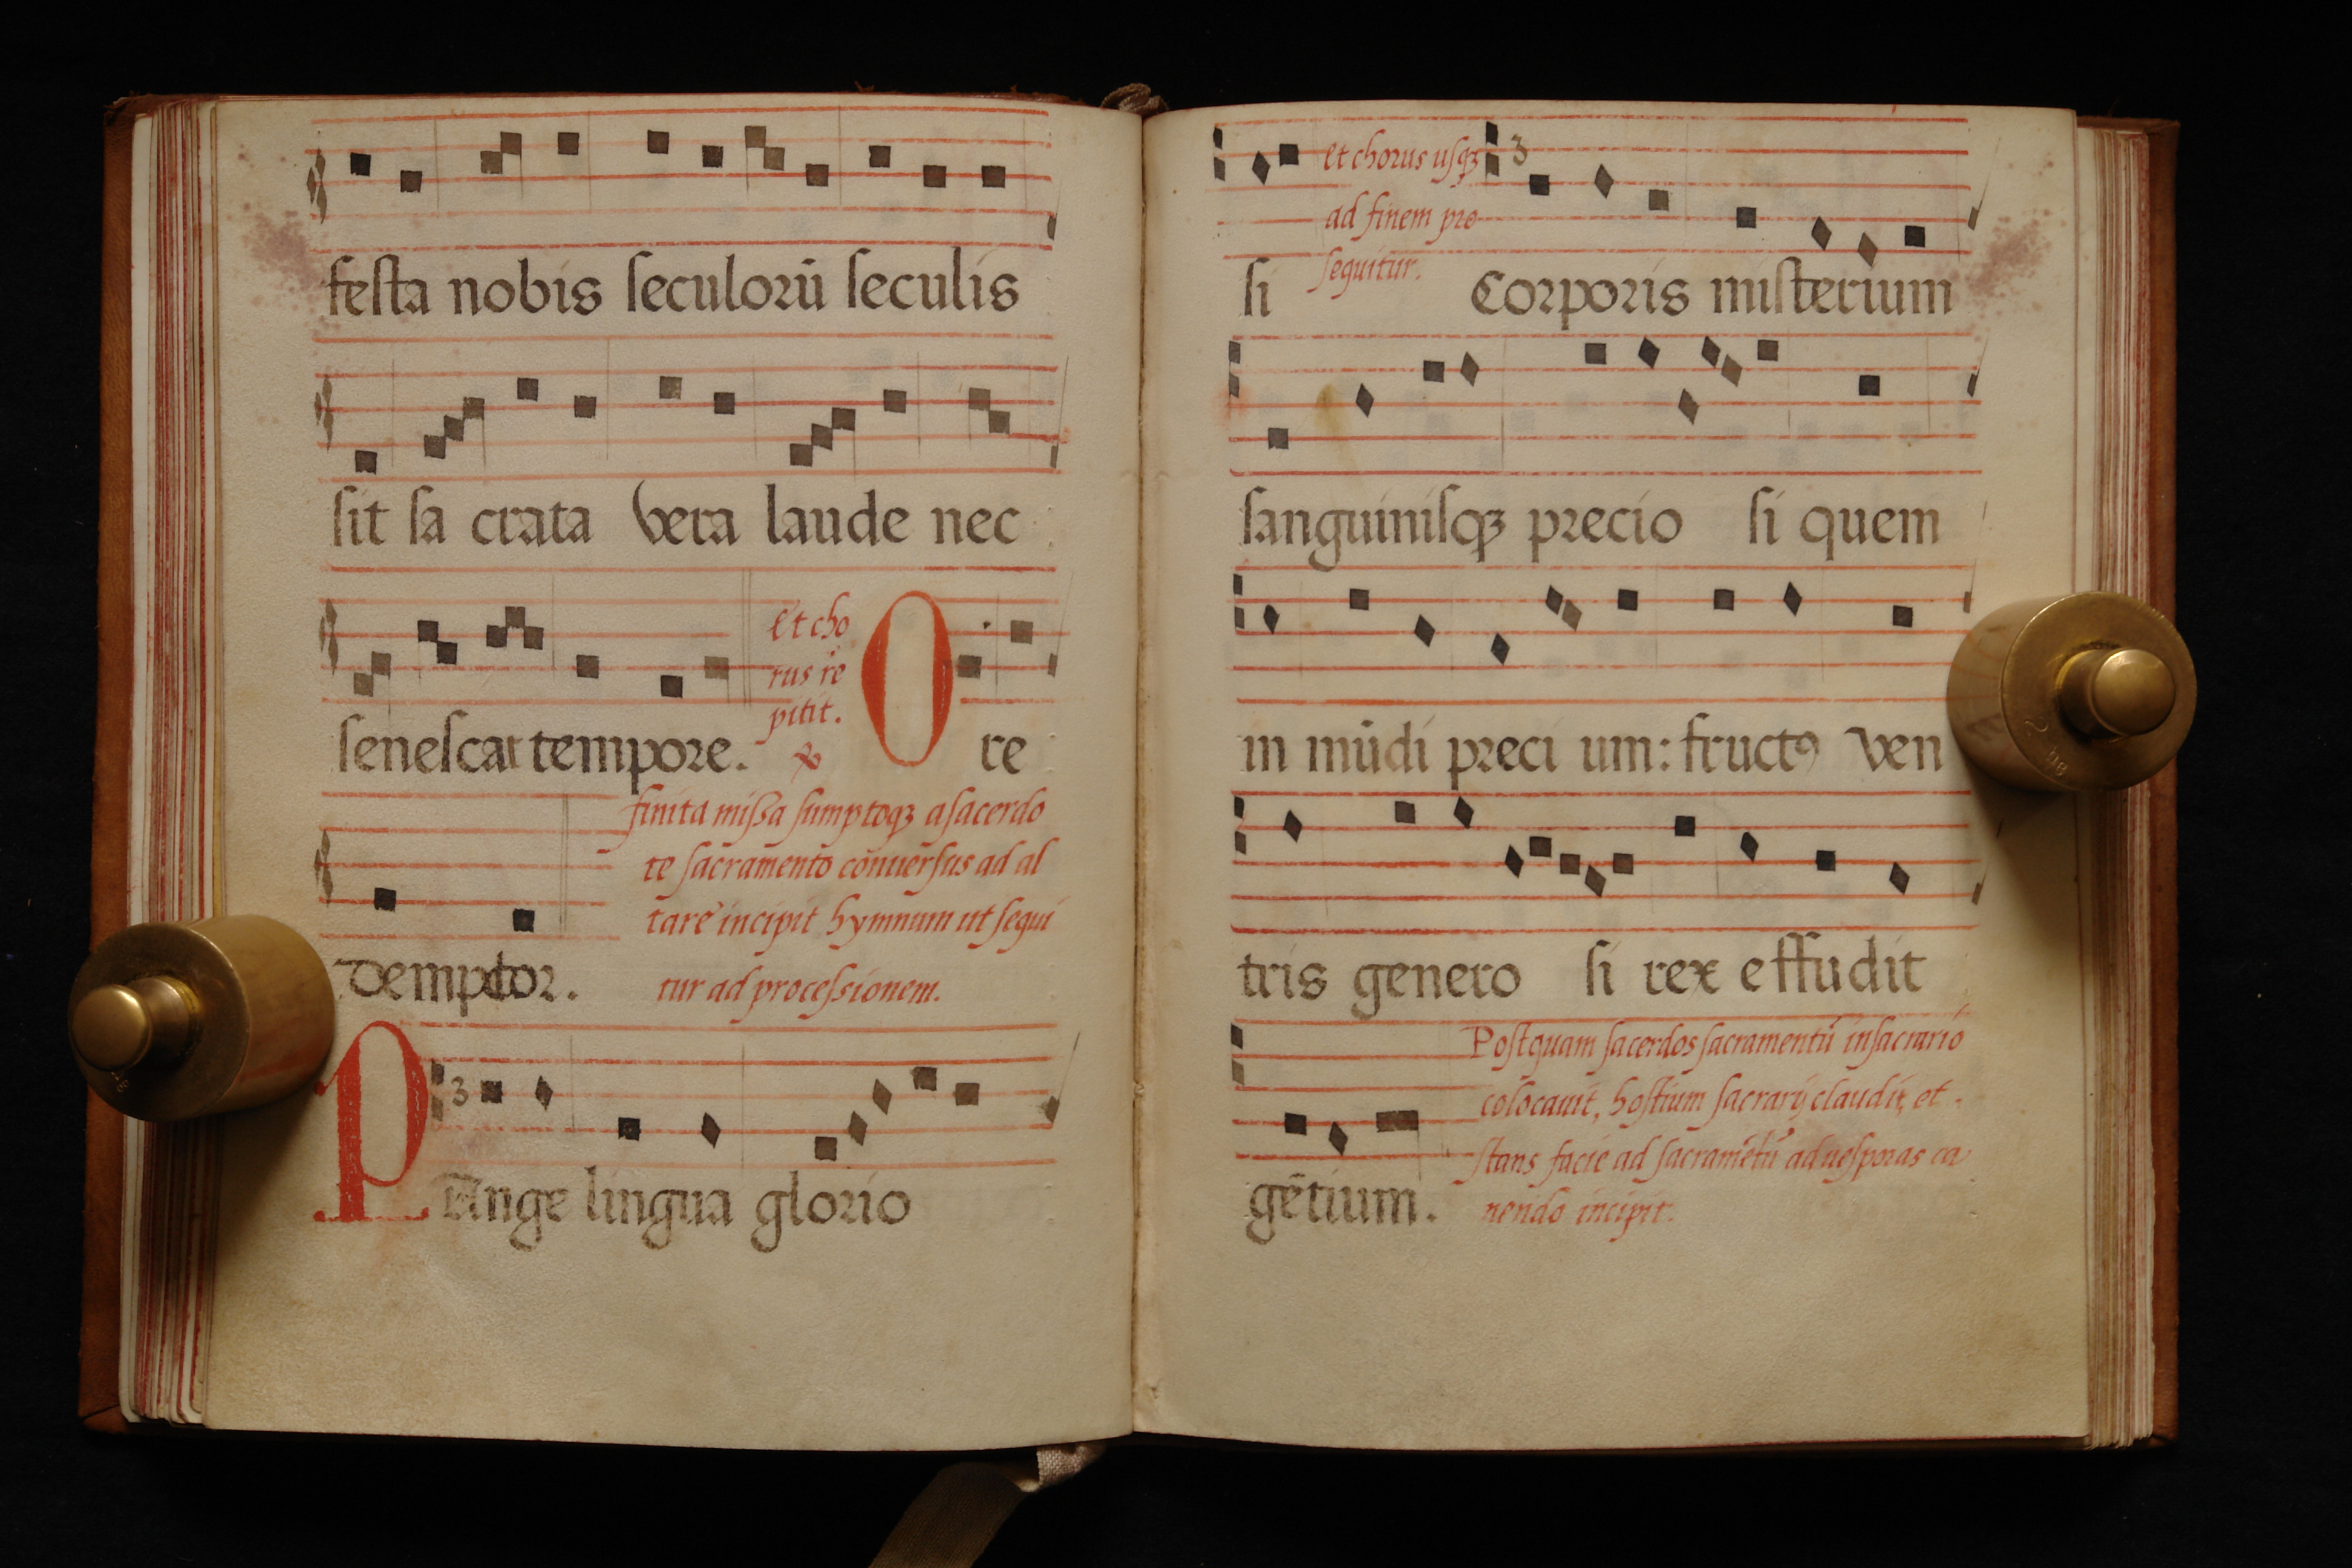 festa nobis seculorū seculis
sit sa crata vera laude nec
senescat tempore.
et cho
rus re
pitit.
O re
demptor.
finita missa sumptoqꝫ a sacerdo
te sacramento conuersus ad al
tare incipit hymnum ut sequi
tur ad processionem.
3
PAnge lingua glorio
et chorus usqꝫ
ad finem pro
sequitur.
3
si Corporis misterium
sanguinisqꝫ precio si quem
in mūdi preci um: fructꝯ ven
tris genero si rex effudit
gētium.
Postquam sacerdos sacramentū in sacrario
colocauit, hostium sacrarij claudit, et
stans facie ad sacramētū ad uesporas ca
nendo incipit.